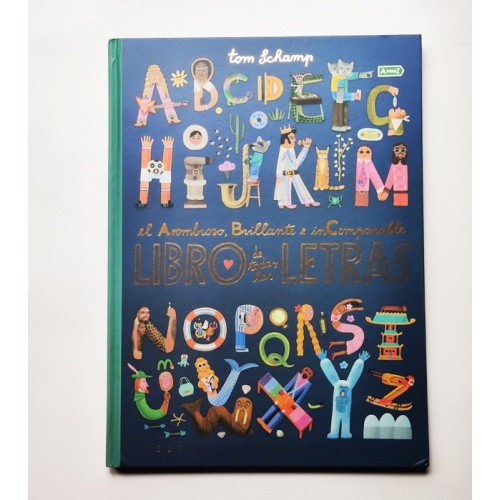 tom Schamp
A noot Z
A B C D E F G
H I J K L M
el Asombroso, Brillante e inComparable
LIBRO de todas las LETRAS
N O P Q R S T
U V W X Y Z